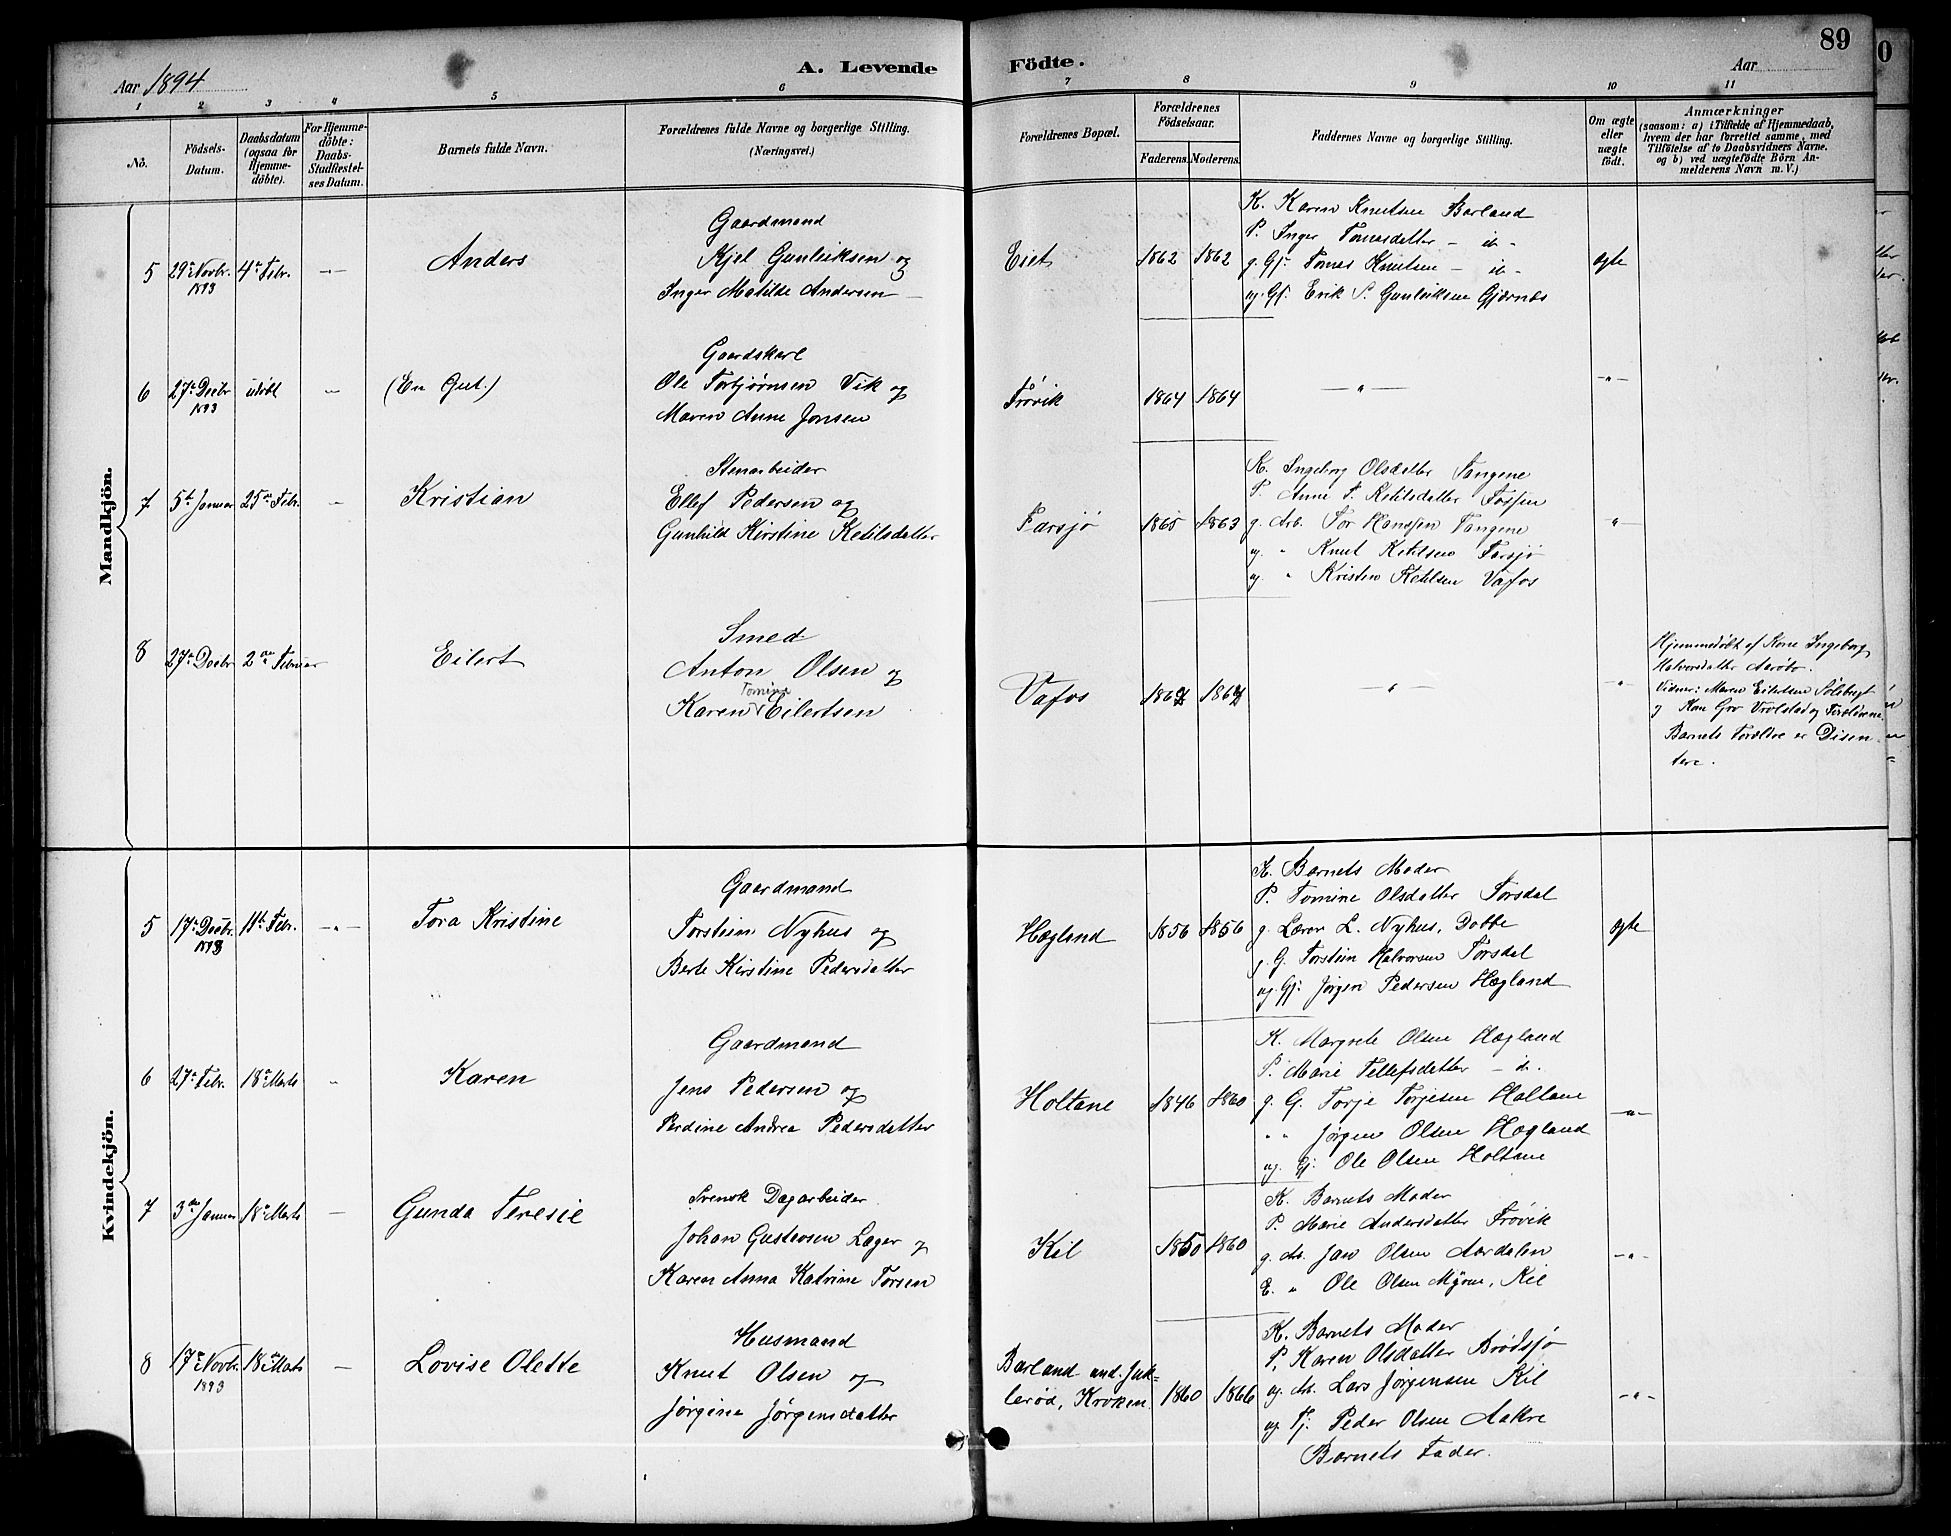 89
0
Aar 1894
A. Levende
Födte.
Aar
1
2
3
4
5
6
7
8
9
10
11
No.
Födsels-
Datum.
Daabsdatum
(ogsaa for
Hjemme-
döbte).
For Hjemme-
döbte:
Daabs-
Stadfæstel-
ses Datum.
Barnets fulde Navn.
Forældrenes fulde Navne og borgerlige Stilling.
(Næringsvei.)
Forældrenes Bopæl.
Forældrenes
Födselsaar.
Faderens.
Moderens.
Faddernes Navne og borgerlige Stilling.
Om ægte
eller
uægte
födt.
Anmærkninger
(saasom: a) i Tilfælde af Hjemmedaab,
hvem der har forrettet samme, med
Tilföielse af to Daabsvidners Navne.
og b) ved uægtefödte Börn An-
melderens Navn m. V.)
Mandkjön.
5
29de Novbr.
1893
4de Febr.
Anders
Gaardmand
Kjel Gunleiksen og
Inger Matilde Andersen
Eiet
1862
1862
K. Karen Knutsen Barland
P. Inger Tomasdatter - ib -
g. Gj. Tomas Knutsen - ib -
og. Gj. Erik P. Gunleiksen Gjernes
ægte
6
27de Decbr
1893
udöbt
(En Gut.)
Gaardskarl
Ole Torbjørnsen Vik og
Maren Anne Jonsen
Frövik
1864
1864
- " -
- " -
7
5te Januar
25de Febr.
Kristian
Stenarbeider
Ellef Pedersen og
Gunhild Kirstine Ketilsdatter
Farsjø
1865
1863
K. Ingeborg Olsdatter Tangene
P. Anne P. Ketilsdatter Fossen
g. Arb. Tor Hanssen Tangene
og. " Knut Ketilsen Farsjø
og " Kristen Ketilsen Vafos
"
8
27de Decbr
2den Februar
Eilert
Smed
Anton Olsen og
Tomine
Karen Eilertsen
Vafos
- " -
- " -
Hjemmedöbt af Kone Ingeborg
Halvorsdatter Aarøbo.
Vidner: Maren Eilertsen
og Kone Gro Vrolstad og Forældrene
Barnets Forældre er Dissen-
tere.
Kvindekjön.
5
17de Decbr.
1893
11te Febr.
- " -
Tora Kristine
Gaardmand
Torstein Nyhus og
Berte Kirstine Pedersdatter
Hægland
1856
1856
K. Barnets Moder
P. Tomine Olsdatter Torsdal
g. Lærer L. Nyhus, Dobbe
g. G. Torstein Halvorsen Torsdal
og. Gj. Jørgen Pedersen Hægland
ægte
6
27de Febr.
18de Marts
"
Karen
Gaardmand
Jens Pedersen og
Perdine Andrea Pedersdatter
Holtane
1846
1860
K. Margrete Olsen Hægland
P. Marie Tellefsdatter - ib.
g. G. Torje Torjesen Holtane
" " Jørgen Olsen Hægland
og. Gj. Ole Olsen Holtane
- " -
7
3die Januar
18de Marts
Gunda Teresie
Svensk Dagarbeider
Johan Gustavsen Lager og
Karen Anna Katrine Torsen
Kil
1850
1860
K. Barnets Moder
P. Marie Andersdatter Frövik
g. Arb. Jan Olsen Aardalen
E. " Ole Olsen Myren, Kil
- " -
8
17de Novbr.
1893
18de Marts
Lovise Olette
Husmand
Knut Olsen og
Jørgine Jørgensdatter
Barland und. Juk-
lerød, Kroken
1860
1866
K. Barnets Moder
P. Karen Olsdatter Brödsjø
og Arb. Lars Jørgensen Kil
og Tj. Peder Olsen Aakre
Barnets Fader.
- " -